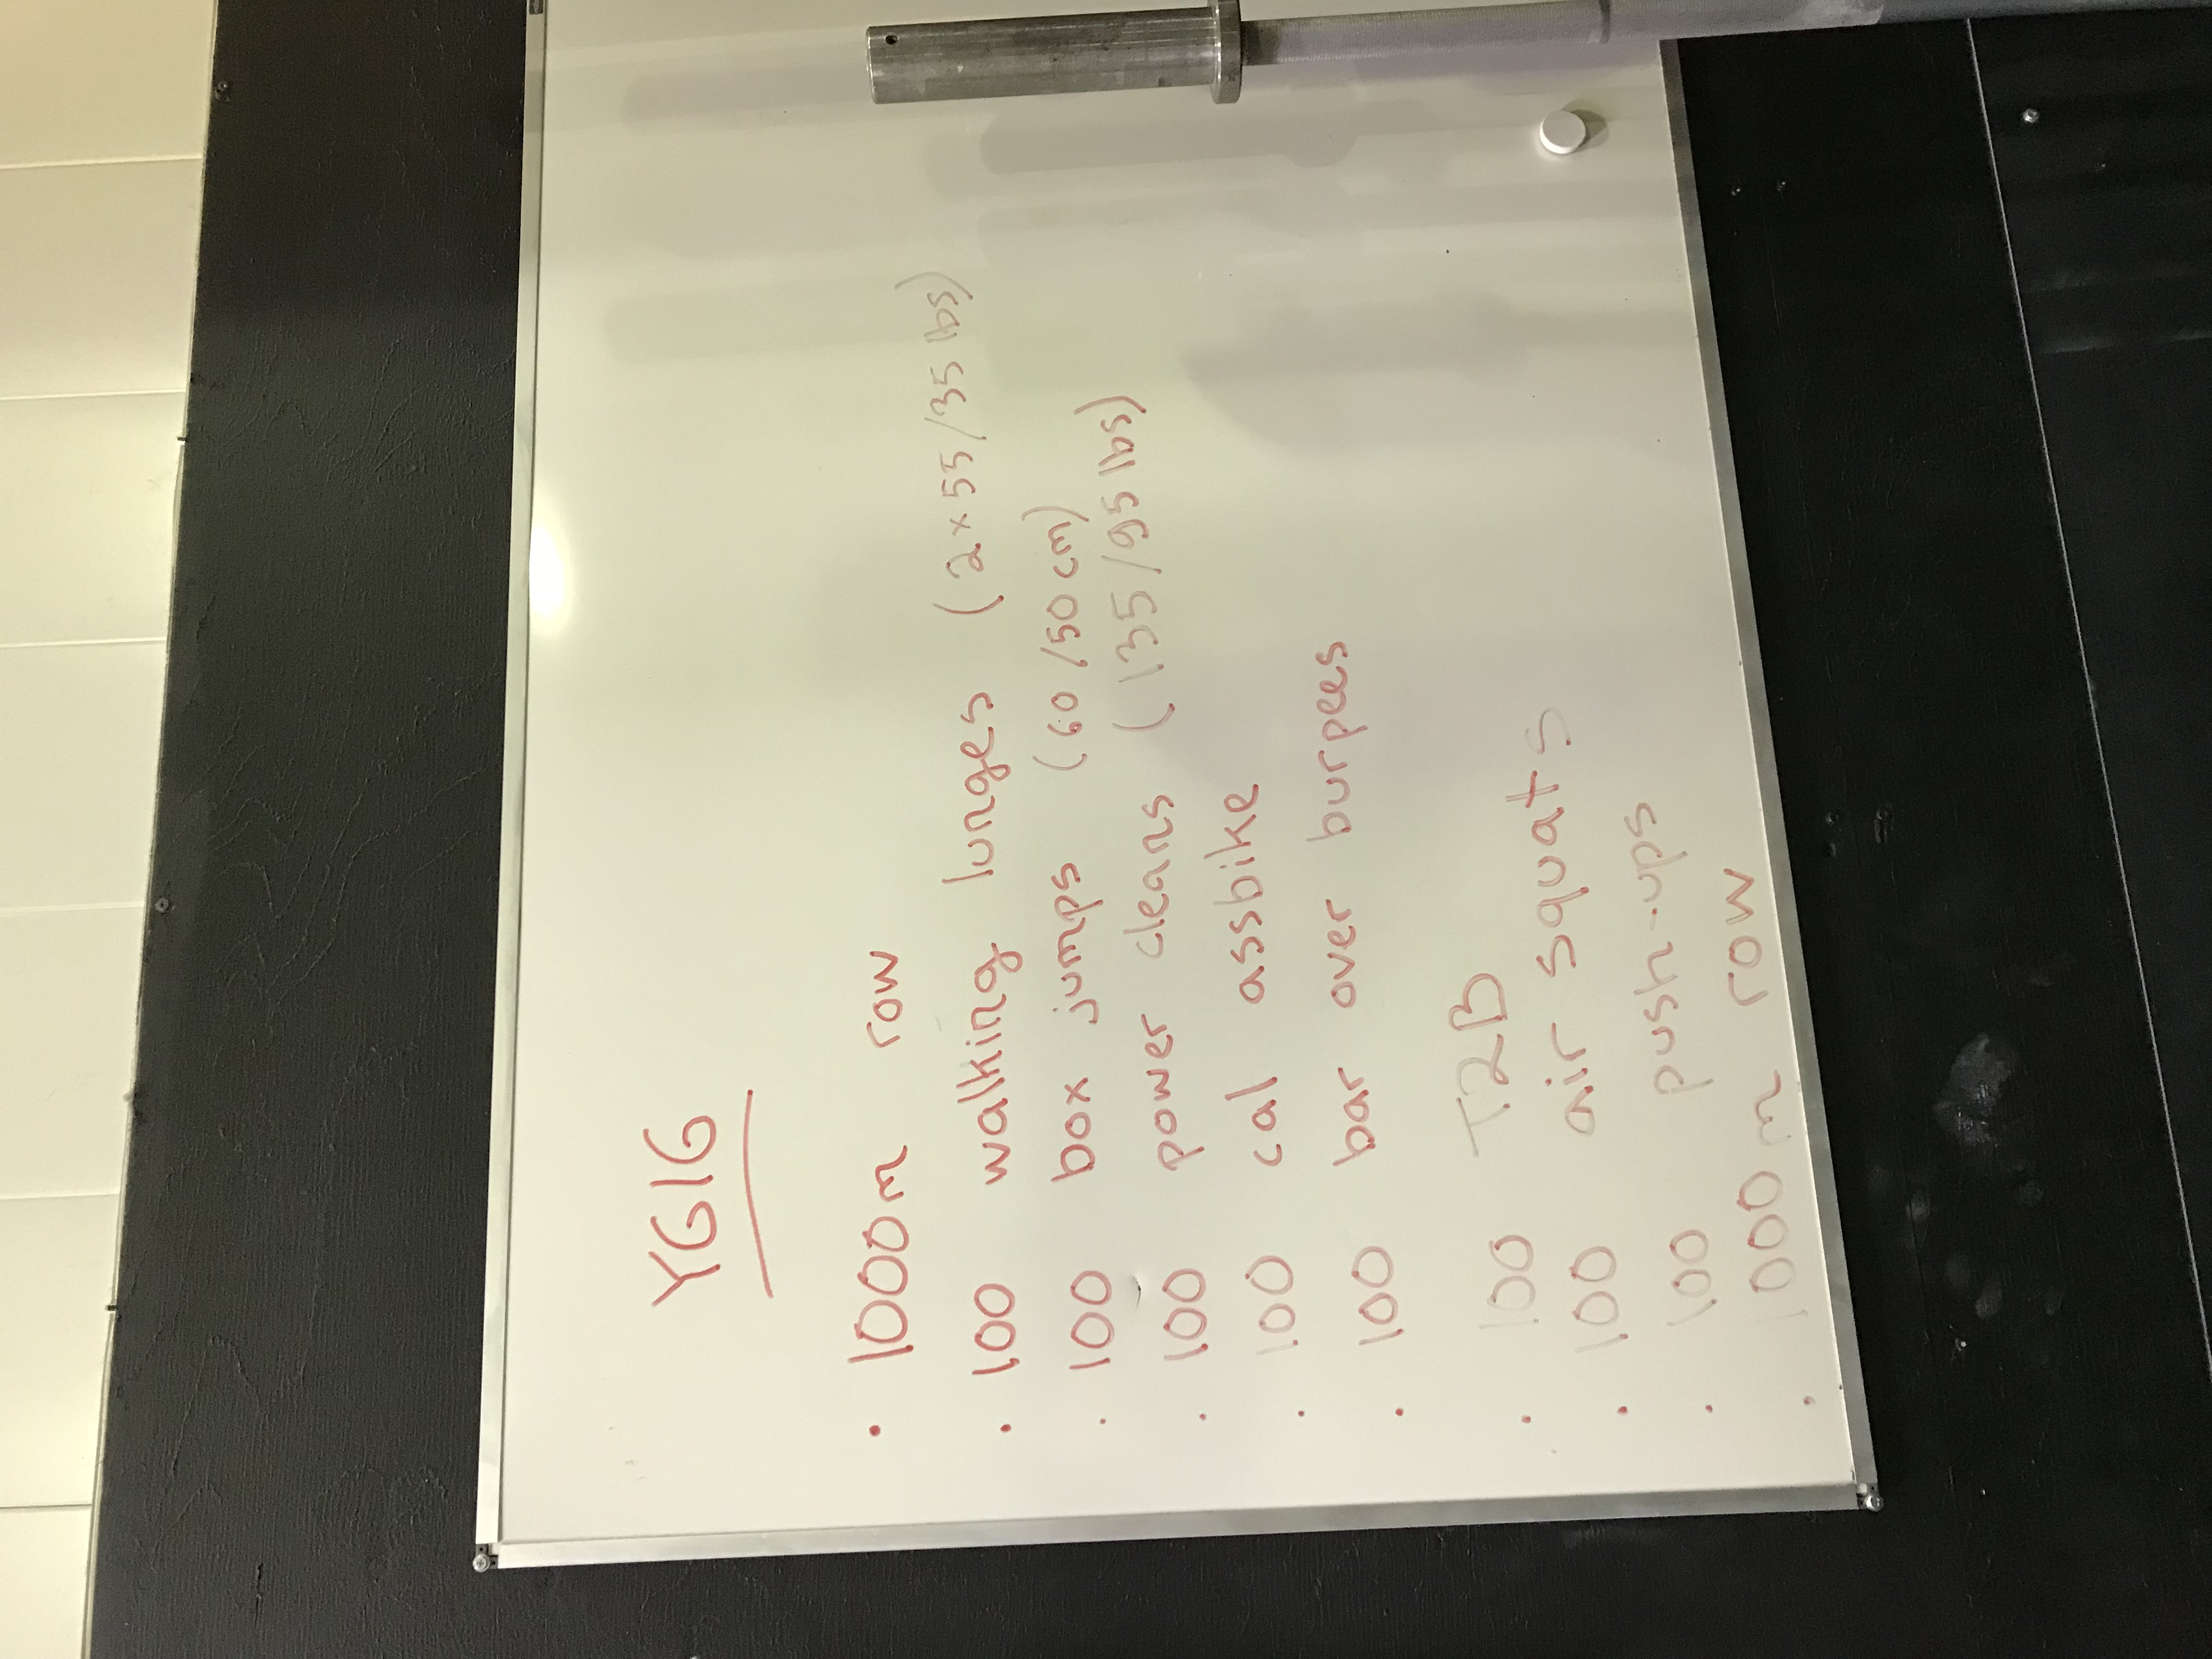 YGIG
· 1000m row
· 100 walking lunges (2x55/35 lbs)
· 100 box jumps (60/50cm)
· 100 power cleans (135/95 lbs)
· 100 cal assbike
· 100 bar over burpees
· 100 T2B
· 100 air squats
· 100 push-ups
· 1000m row